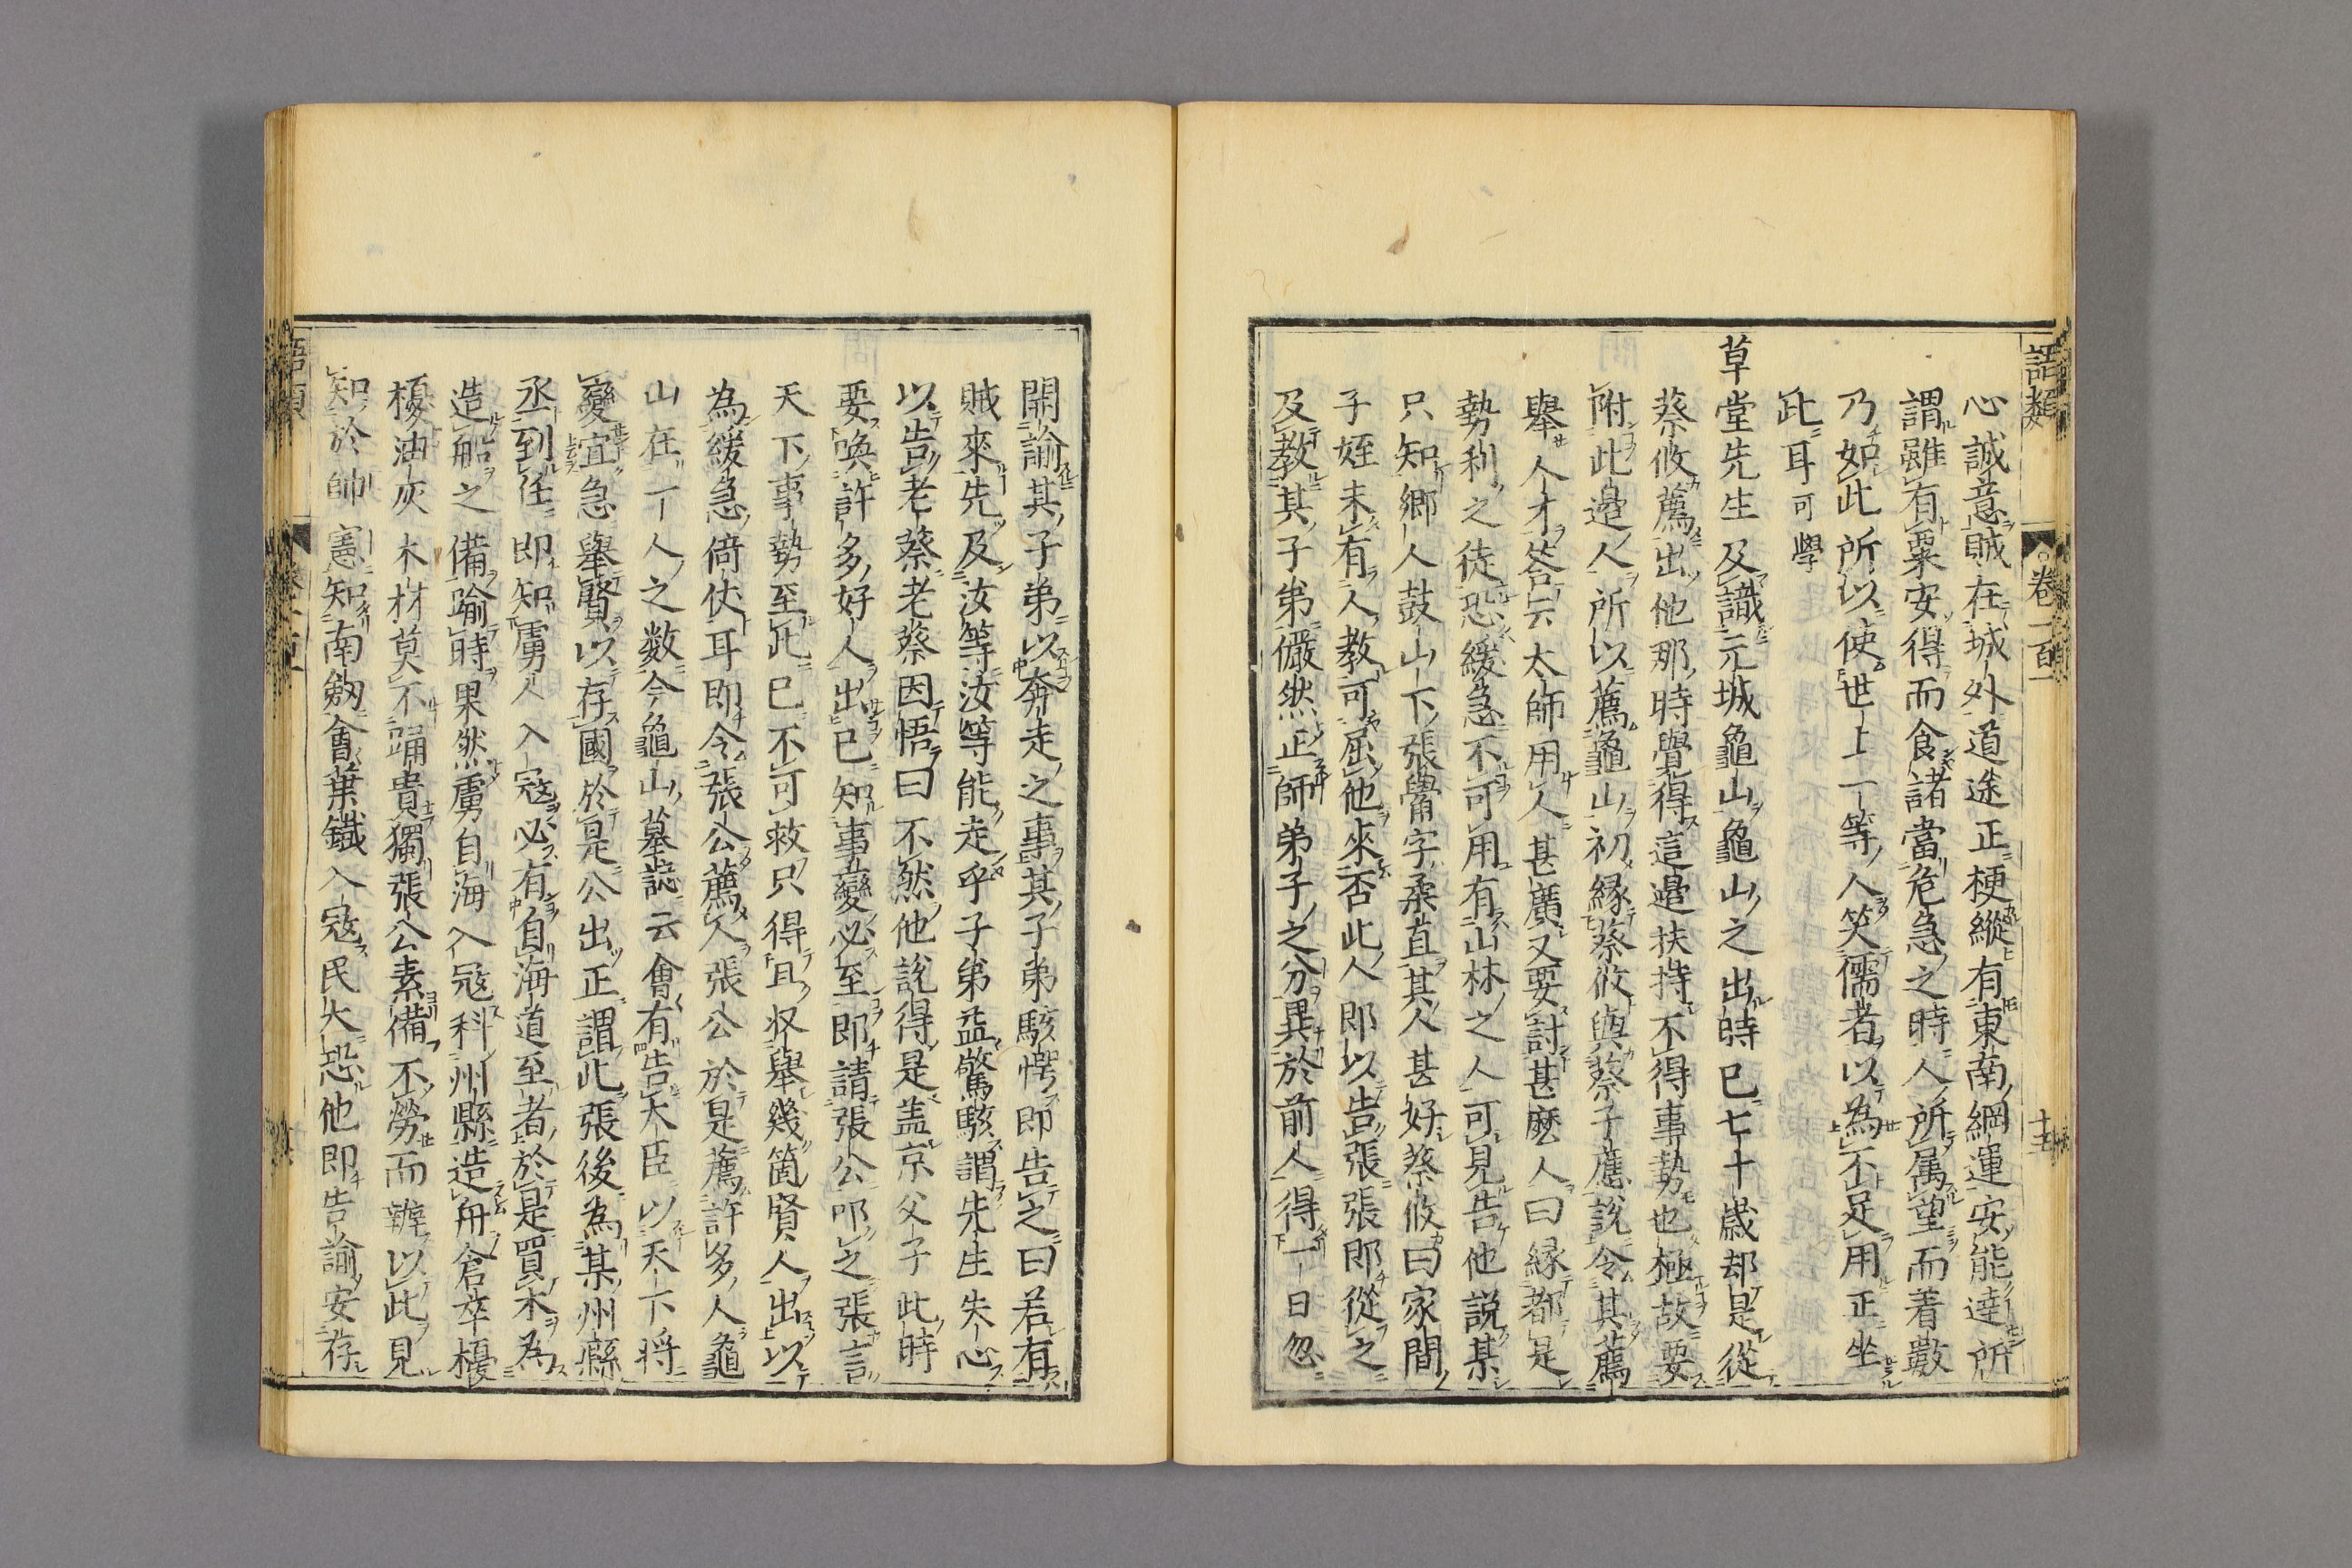 語類　卷一百一　十五
心誠意賊在城外道途正梗縱有東南綱運安能達所
謂雖有粟安得而食諸當危急之時人所属望而着數
乃如此所以使世上一等人笑儒者以為不足用正坐
此耳可學
草堂先生及識元城龜山龜山之出時已七十歲却是從
蔡攸薦出他那時覺得這邉扶持不得事勢也極故要
附此邉人所以薦龜山初縁蔡攸與蔡子應說令其薦
舉人才答云太師用人甚廣又要討甚麽人曰縁都是
勢利之徒恐緩急不可用有山林之人可見告他説某
只知鄉人鼓山下張觷字柔直其人甚好蔡攸曰家間
子姪未有人教可屈他來否此人即以告張張即從之
及教其子弟儼然正師弟子之分異於前人得一日忽
開諭其子弟以奔走之事其子弟駭愕即告之曰若有
賊來先及汝等汝等能走乎子弟益驚駭謂先生失心
以告老蔡老蔡因悟曰不然他說得是盖京父子此時
要喚許多好人出已知事變必至即請張公叩之張言
天下事勢至此已不可救只得且収舉幾箇賢人出以
為緩急倚仗耳即令張公薦人張公於是薦許多人龜
山在一人之数今龜山墓誌云會有告大臣以天下將
變宜急舉賢以存國於是公出正謂此張後為某州縣
丞到任即知虜人入寇必有自海道至者於是買木為
造船之備踰時果然虜自海入寇科州縣造舟倉卒擾
擾油灰木材莫不踊貴獨張公素備不勞而辦以此見
知於帥憲知南劒會葉鐵入寇民大恐他即告諭安存